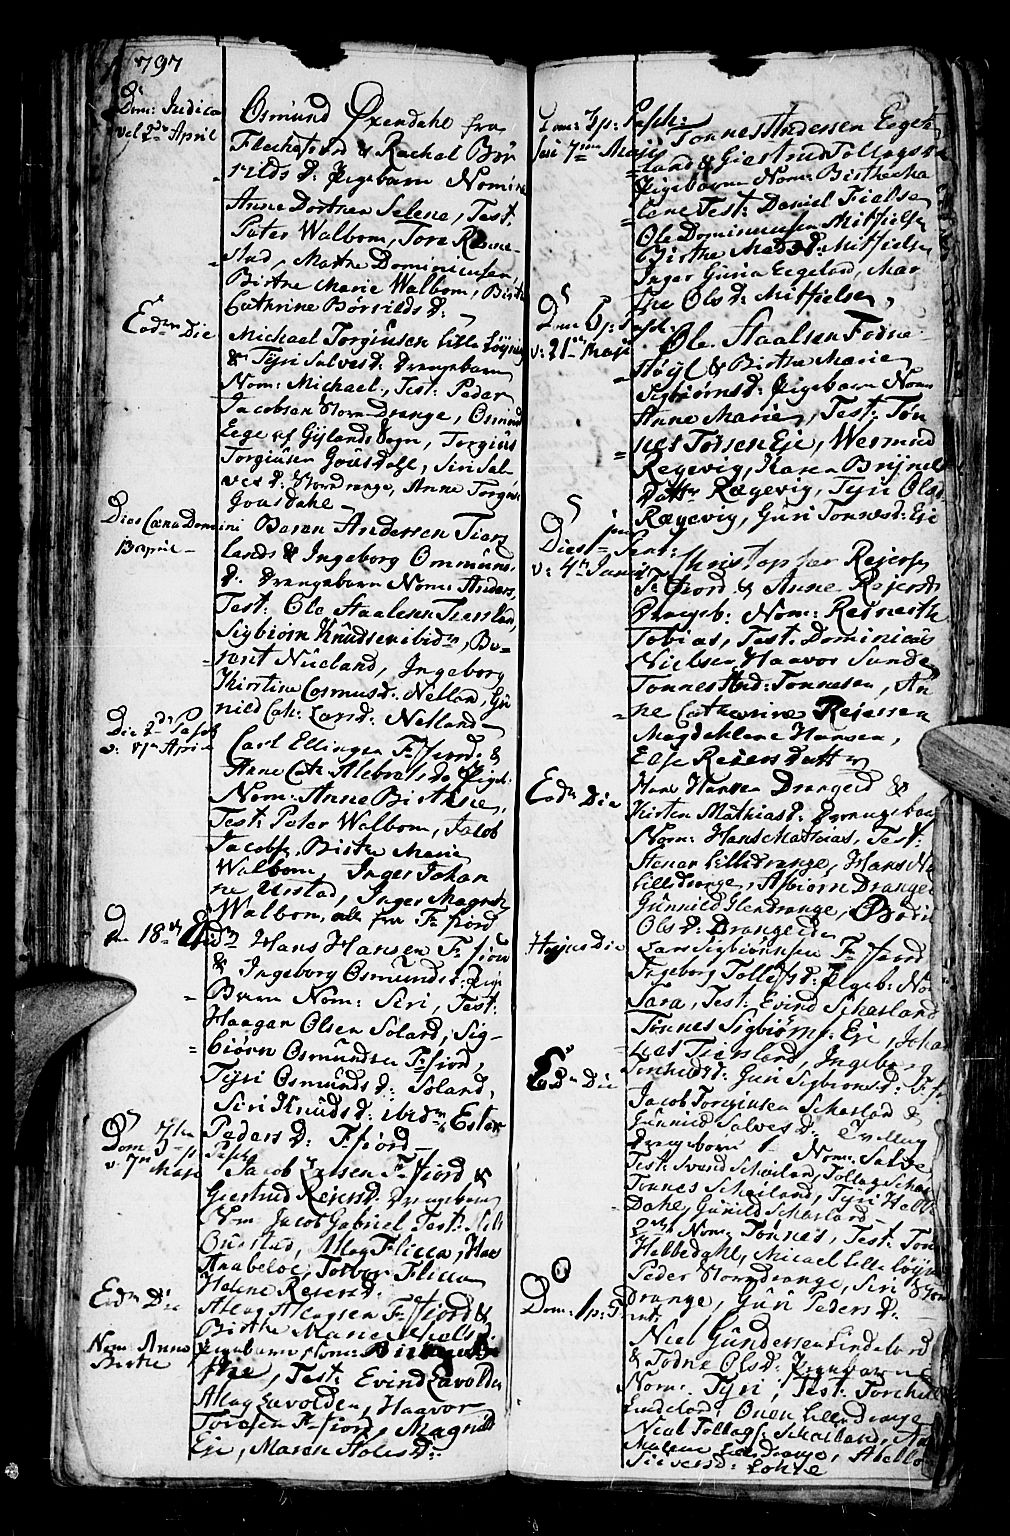 1797
Dom: Judica
vel 2den April
Osmund Øxendahl fra
Flechefiord & Rachel Bør
rilds D: Pigebarn Nomine
Anne Dorthea Selene, Test:
Peter Walbom, Tore Rœme
stad, Marthe Dominicusen,
Birthe Marie Walbom, Birthe
Cathrine Børrilds D:
Eodm Die
Michael Torgiusen Lille Løyning
& Tyri Salves D: Drengebarn
Nom: Michael, Test: Peder
Jacobsen StoreDrange, Osmund
Eege af Gylands Sogn, Torgius
Torgiusen Gousdahl, Siri Sal
ves D: StoreDrange, Anne Torgius
Gousdahl
Dies Cœna Domini
13 april
Basen Andersen Tiers
lands & Ingeborg Ommunds
D: Drengebarn Nom: Anders,
Test: Ole Staalesen Tiersland,
Sigbiørn Knudsen ibidm, Be=
rent Nueland, Ingeborg
Kirstine Cosmus D: Netland, Gu
nild Cath: Lars D: Netland
Die 2da Pasch
v: 17 April
Carl Ellingsen F:fiord &
Anne Cath: Alebrats do Pigeb:
Nom: Anne Birthine,
Test: Peter Walbom, Jacob
Jacobs, Birthe Marie
Walbom, Inger Johan
ne Urstad, Inger Magreth
Walbom, alle fra F:fiord
Den 18de
Hans Hansen F:fiord
& Ingeborg Osmunds D: Pige
Barn Nom: Siri, Test:
Haagan Olsen Soland, Sig=
biørn Osmundsen F:fiord,
Tyri Osmunds D: Soland,
Siri Knuds D: ibidm, Ester
Peders D: F:fiord
Dom: p: Pasch
v: 7m Maji
Jacob Larsen F:fiord &
Giertrud Rejers D: Drengebarn
Nom: Jacob Gabriel Test: Nils
Øuestad, Atlag Flicca,
Aabeloe, Torbor Flicca
Helene Rejers D:
Eodm Die
Nom: Anne
Birthe
Atlag Atlagsen F:fiord &
Birthe Marie Niels D:
Pigebarn Nom:
the, Test: Evind Lavolden
Atlag Lavolden, Haavor
Toresen F:fiord, Magnild
Eje, Maren Holes D:
Dom: 3 p: Pasch:
sive 7mum Maji
Tønnes Andersen Eege
land & Giertrud Tollags D:
Pigebarn Nom: Birthe Ma
lene Test: Daniel Fielse
Ole Dominicusen Mitfielse
Birthe Mads D: Mitfielse
Inger Guria Eegeland, Mar
the Ols D: Mitfielse,
Dom: 5 p: Pasch:
v: 21de Maji
Ole Staalsen Fodne
støyl & Birthe Marie
Sigbiørns D: Pigebarn Nom:
Anne Marie, Test: Tøn
nes Torsen Eje, Wermund
Regevig, Karen Brynils
Datter Rœgevig, Tyri Ols D:
Rœgevig, Guri Tønnes D: Eje
Dies 1ma Pent:
v: 4de Junii
Christopher Rejersen
F:fiord & Anne Rejers D:
Drengeb: Nom: Reinerth
Tobias, Test: Dominicus
Nielsen, Haavor Sunde
Tønnes And: Tønnesen, An
ne Catharine Rejersen
Magdalene Hansen,
Else Rejersdatter
Eodm Die
Hans Hansen Drangeid &
Kirsten Mathias D: Drengebarn
Nom: Hans Mathias, Test:
Stener Lilledrange, Hans
Lilledrange, Asbiørn Drangeid
Gunnild Glendrange, Bodil
Ols D: Drangeid
Hujus Die
Lars Sigbiørnsen F:fiord
Ingeborg Tollefs D: Pigeb: No
Sara, Test: Evind Schasland
Tønnes Sigbiørns: Eje, Johan
nes Tiersland, Ingeborg
Tonhilds D: Guri Sigbiørns D: F:fi
Eodm Die
Jacob Torgiusen Schaslad &
Gunnild Salves D: Tvilling
drengebørn 1 Nom: Salve
Test: Svend Schasland, Tollag Schas
Tønnes Schasland, Tyri Helle
Dahl, Gunild Schasland
2den Nom: Tønnes, Test: Tønnes
Helledahl, Micael Lille Løyni
Peder Storedrange, Siri Store
drange, Guri Peders D:
Dom: 1 p: Trinit:
Niel Gundersen Lindeland
& Todne Ols D: Pigebarn
Nom: Tyri, Test: Torchild
Lindeland, Onen Lilledrange
Niel Tollags: Schasland,
Malene Lilledrange, Abello
Sivers D: Lohne